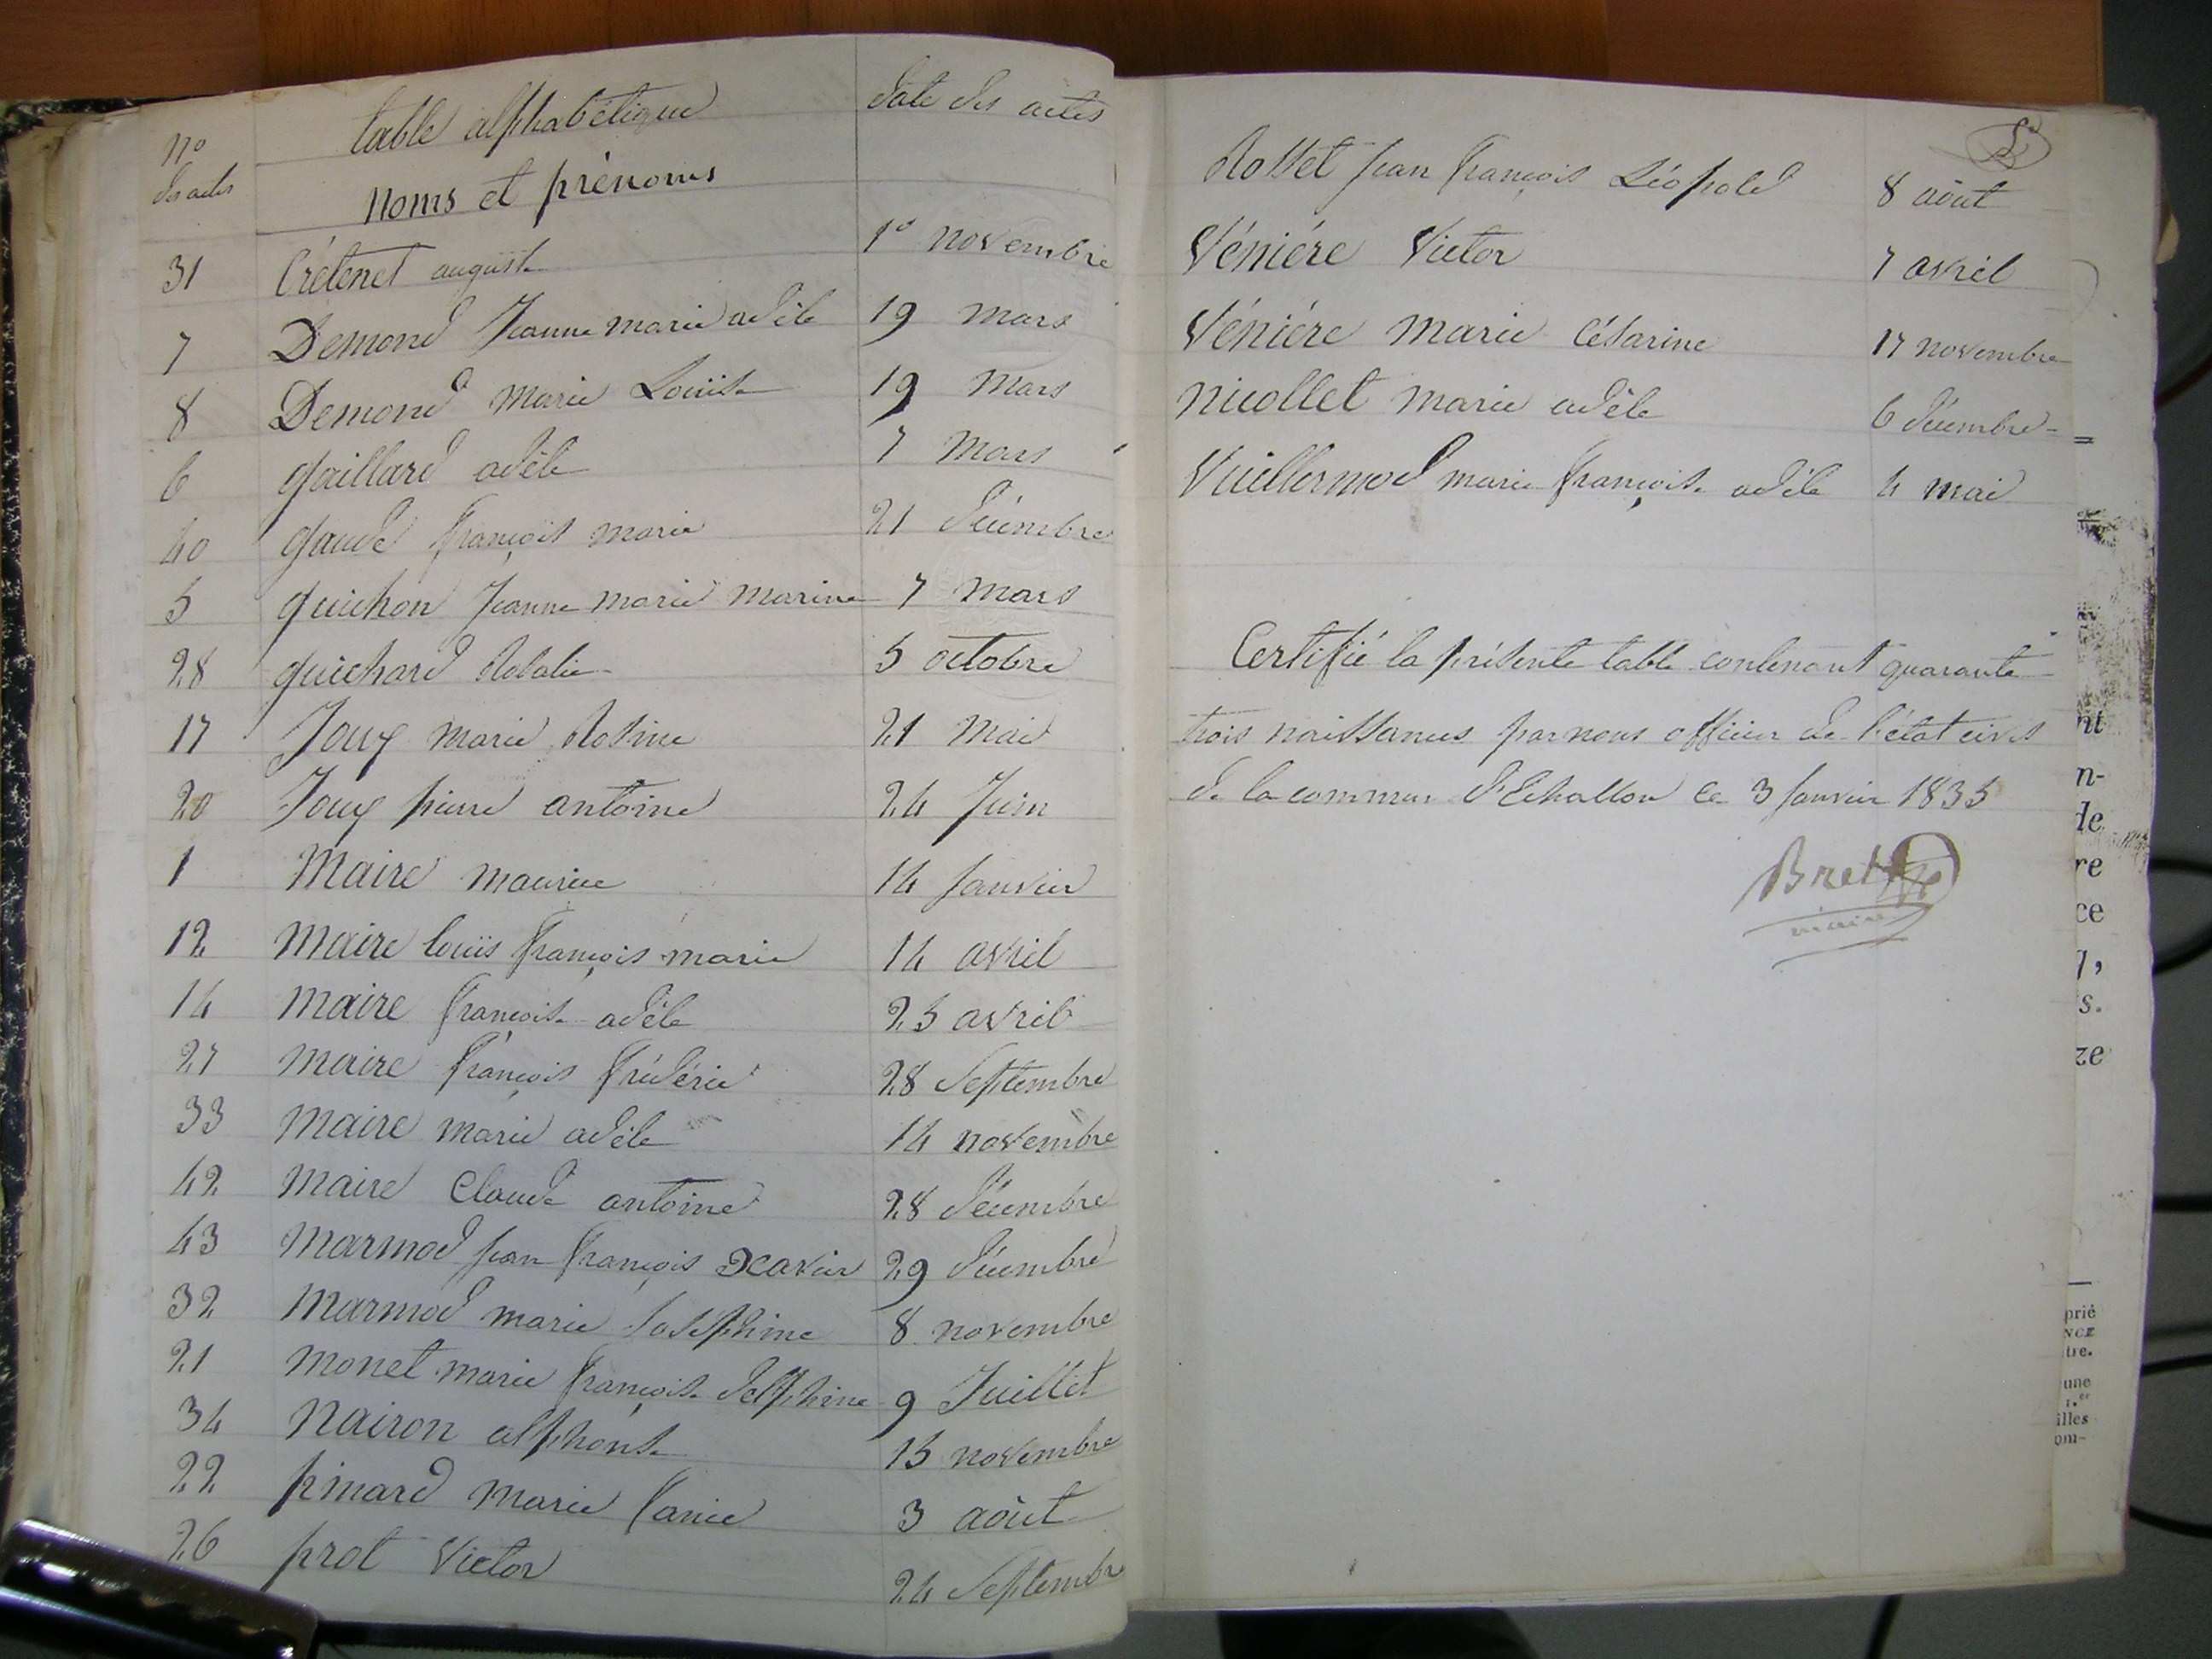 No des actes table alphabétique date des actes
Noms et prénoms
31 Crétenet auguste 1o novembre
7 Demond Jeanne marie adèle 19 mars
8 Demond Marie Louise 19 Mars
6 gaillard adèle 7 Mars
40 gaude françois marie 21 décembre
5 guichon Jeanne marie marine 7 mars
28 guichard Rosalie 5 octobre
17 Jouy marie Rosine 21 mai
20 Jouy pierre antoine 24 Juin
1 Maire maurice 14 Janvier
12 Maire louis françois marie 14 avril
14 Maire françoise adèle 25 avril
27 Maire françois frédéric 28 Septembre
33 Maire marie adèle 14 novembre
42 Maire Claude antoine 28 décembre
43 Marmod jean françois Xavier 29 décembre
32 Marmod marie Joséphine 8 novembre
21 Monet marie françoise delphine 9 Juillet
34 Nairon alphonse 15 novembre
22 pinard Marie fanie 3 août
26 prot Victor 24 Septembre
Rosset jean françois Léopold 8 août
Vénière Victor 7 avril
Vénière Marie Césarine 17 novembre
Nicollet marie adèle 6 décembre
Vuillermod marie françoise adèle 4 mai
Certifié la présente table contenant quarante
trois naissances par nous officier de l'état civil
de la commune d'Echallon ce 3 Janvier 1835
Bret
maire
nt
n-
de
re
ce
s.
ze
prié
NCE
tre.
une
1.er
illes
om-